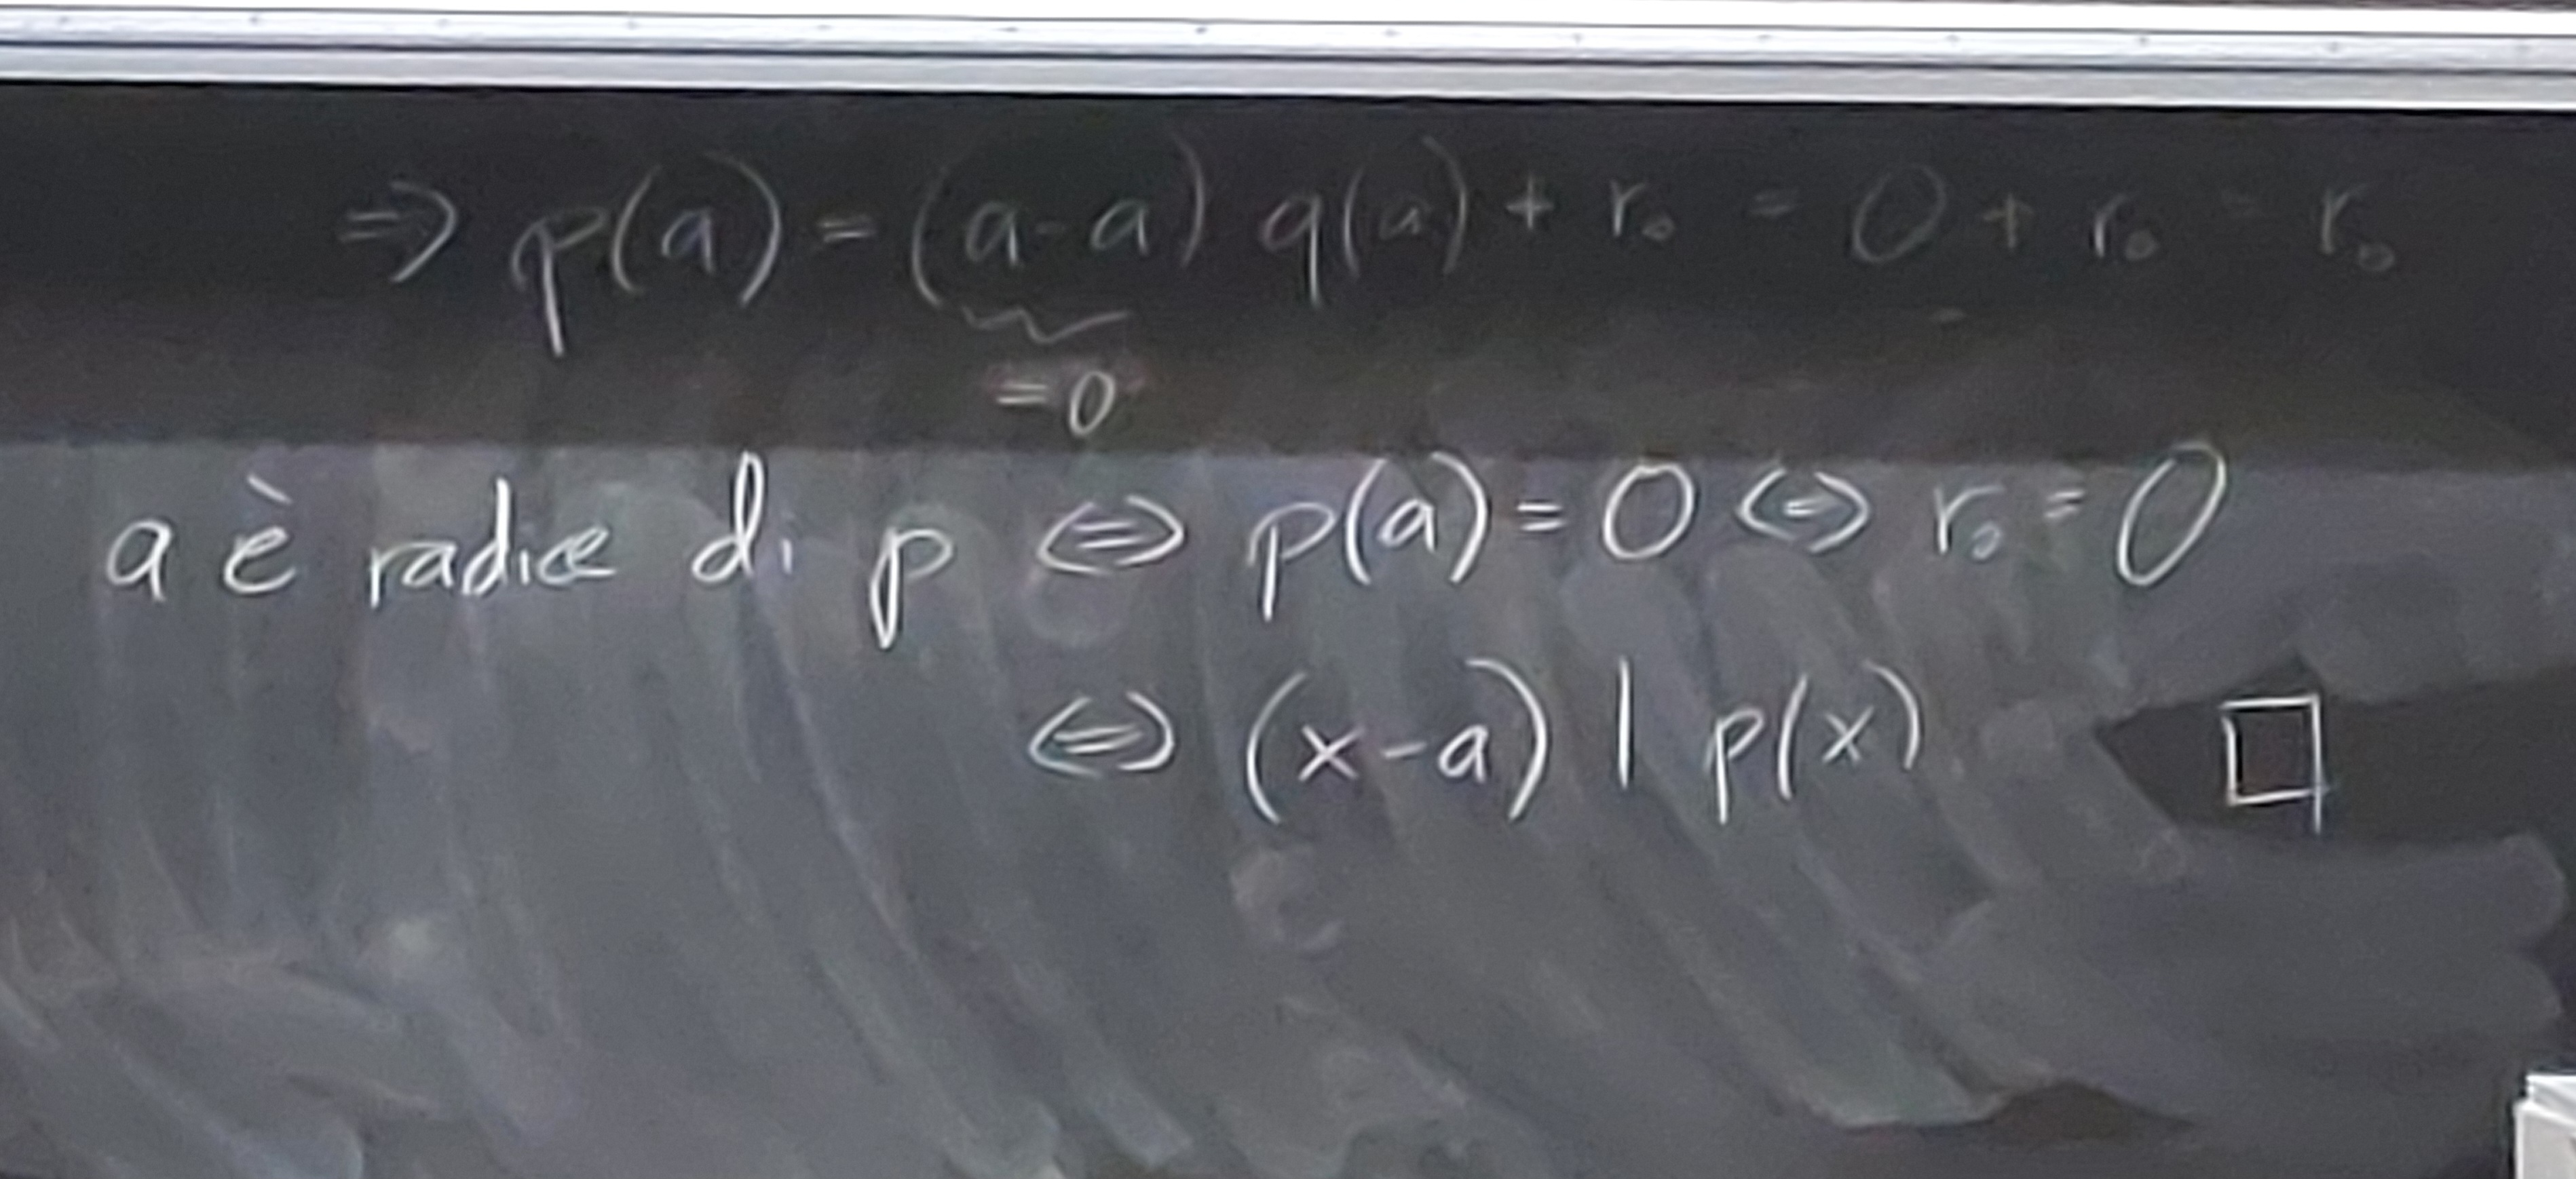 ⇒ p(a) = (a-a) q(a) + r₀ = 0 + r₀ = r₀
= 0
a è radice di p ⇔ p(a) = 0 ⇔ r₀ = 0
⇔ (x-a) | p(x) □